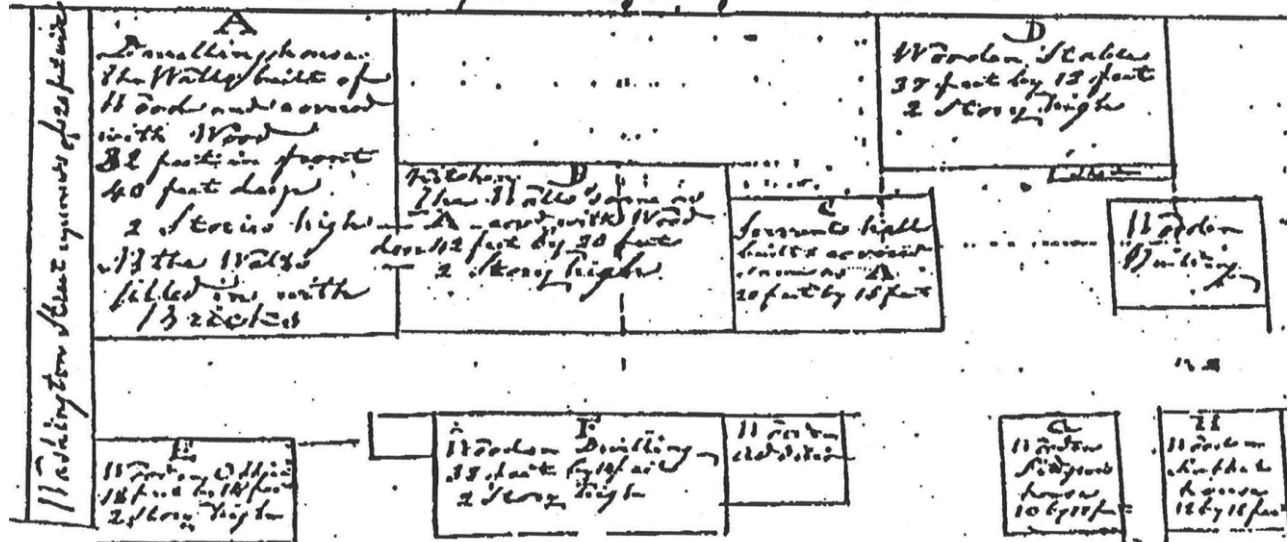 Washington Street upwards of 20 feet wide
A
Dwelling house
The Walls built of
Wood and covered
with Wood
32 feet in front
40 feet deep
2 Stories high
A the Walls
filled in with
Bricks
Kitchen B
The Walls same as
A and with Wood
12 feet by 20 feet
2 Story high
C
Servants hall
built & covered
same as A
20 feet by 18 feet
D
Wooden Stable
38 feet by 18 feet
2 Story high
Shed
Wooden
Building
E
Wooden Office
18 feet by 18 feet
2 Story high
F
Wooden Dwelling
38 feet by 18 feet
2 Story high
Wooden
addition
G
Wooden
house
10 by 18 feet
H
Wooden
house
12 by 18 feet